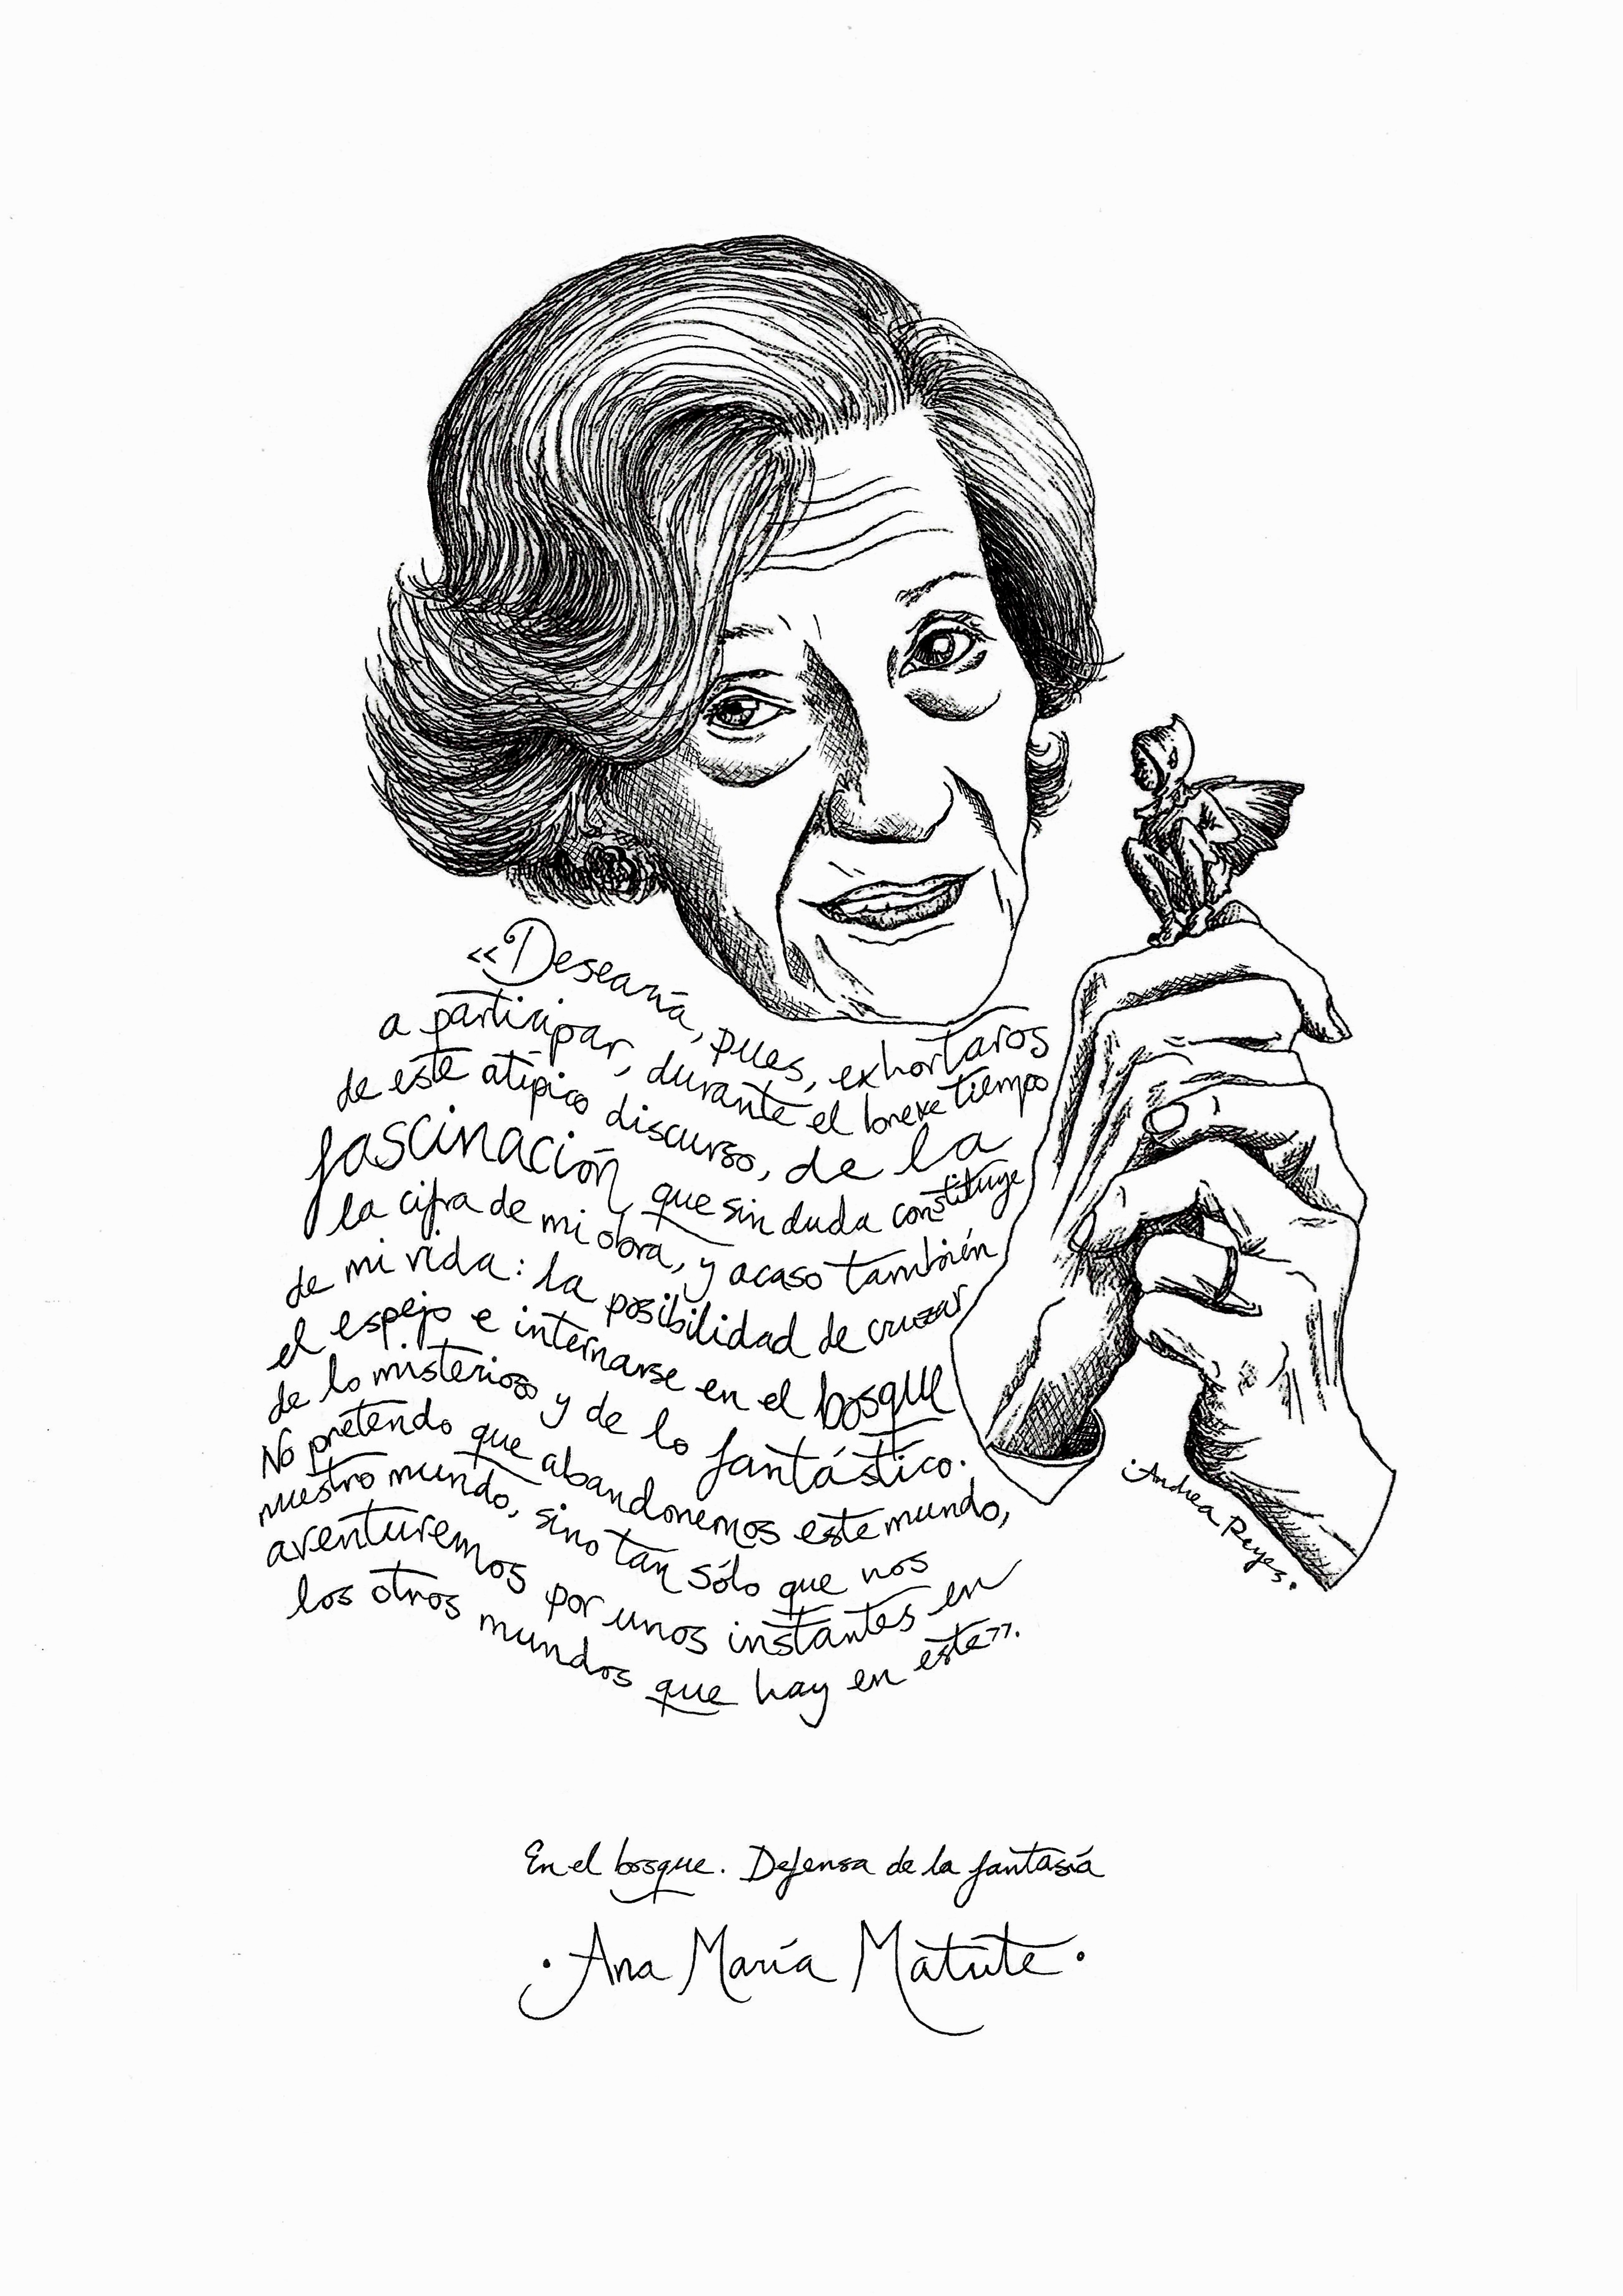 «Desearía, pues, exhortaros
a participar, durante el breve tiempo
de este atípico discurso, de la
fascinación que sin duda constituye
la cifra de mi obra, y acaso también
de mi vida: la posibilidad de cruzar
el espejo e internarse en el bosque
de lo misterioso y de lo fantástico.
No pretendo que abandonemos este mundo,
nuestro mundo, sino tan sólo que nos
aventuremos por unos instantes en
los otros mundos que hay en este».
·Andrea Reyes·
En el bosque. Defensa de la fantasía
·Ana María Matute·